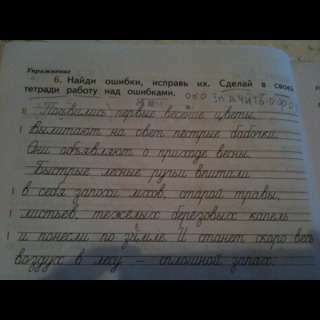 Упражнение
6. Найди ошибки, исправь их. Сделай в своей
тетради работу над ошибками.
Появились первые весение цветы.
Вылитают на свет пёстрые бабочки.
Они объявляют о приходе весны.
Быстрые лесные ручьи впитали
в себя запохи мхов, старой травы,
листьев, тежёлых берёзовых капель
и понесли по зимле. И станет скоро весь
воздух в лесу – сплошной запах.